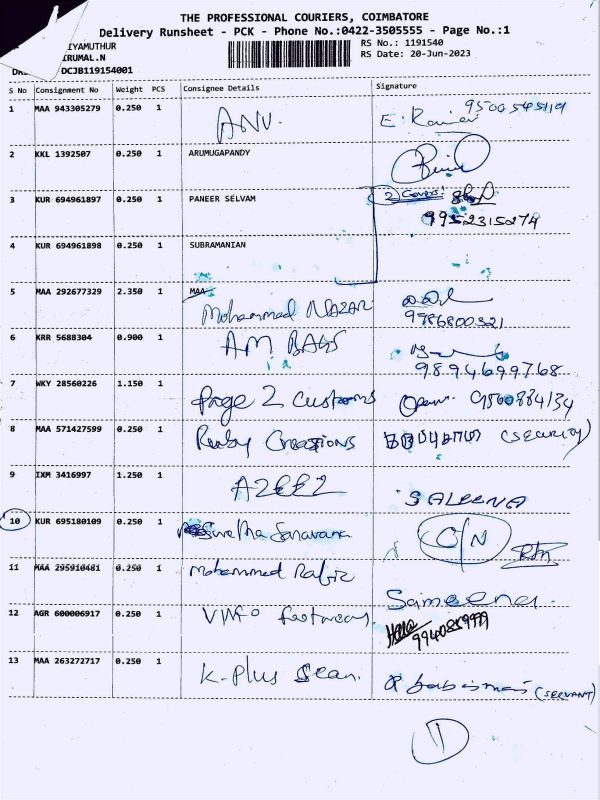 THE PROFESSIONAL COURIERS, COIMBATORE
Delivery Runsheet - PCK - Phone No.:0422-3505555 - Page No.:1
IYAMUTHUR
RS No.: 1191540
IRUMAL.N
RS Date: 20-Jun-2023
DCJB119154001
S No Consignment No Weight PCS Consignee Details Signature
1 MAA 943305279 0.250 1 ANV. E. 
2 KKL 1392507 0.250 1 ARUMUGAPANDY
3 KUR 694961897 0.250 1 PANEER SELVAM 2 Covers
9952315274
4 KUR 694961898 0.250 1 SUBRAMANIAN
5 MAA 292677329 2.350 1 MAA
Mohammad NAZAR
9786800321
6 KRR 5688304 0.900 1 AM BAGS
9894699768
7 WKY 28560226 1.150 1 Page 2 Customs
8 MAA 571427599 0.250 1 Ruby Creations (SECURITY)
9 IXM 3416997 1.250 1 AZEEZ SALEENA
10 KUR 695180109 0.250 1 Suretha Saravana O/N
11 MAA 295910481 0.250 1 Mohammed Rafiz
Sameena.
12 AGR 600006917 0.250 1 footwears
9940859979
13 MAA 263272717 0.250 1 K-Plus Sean. (SERVANT)
11